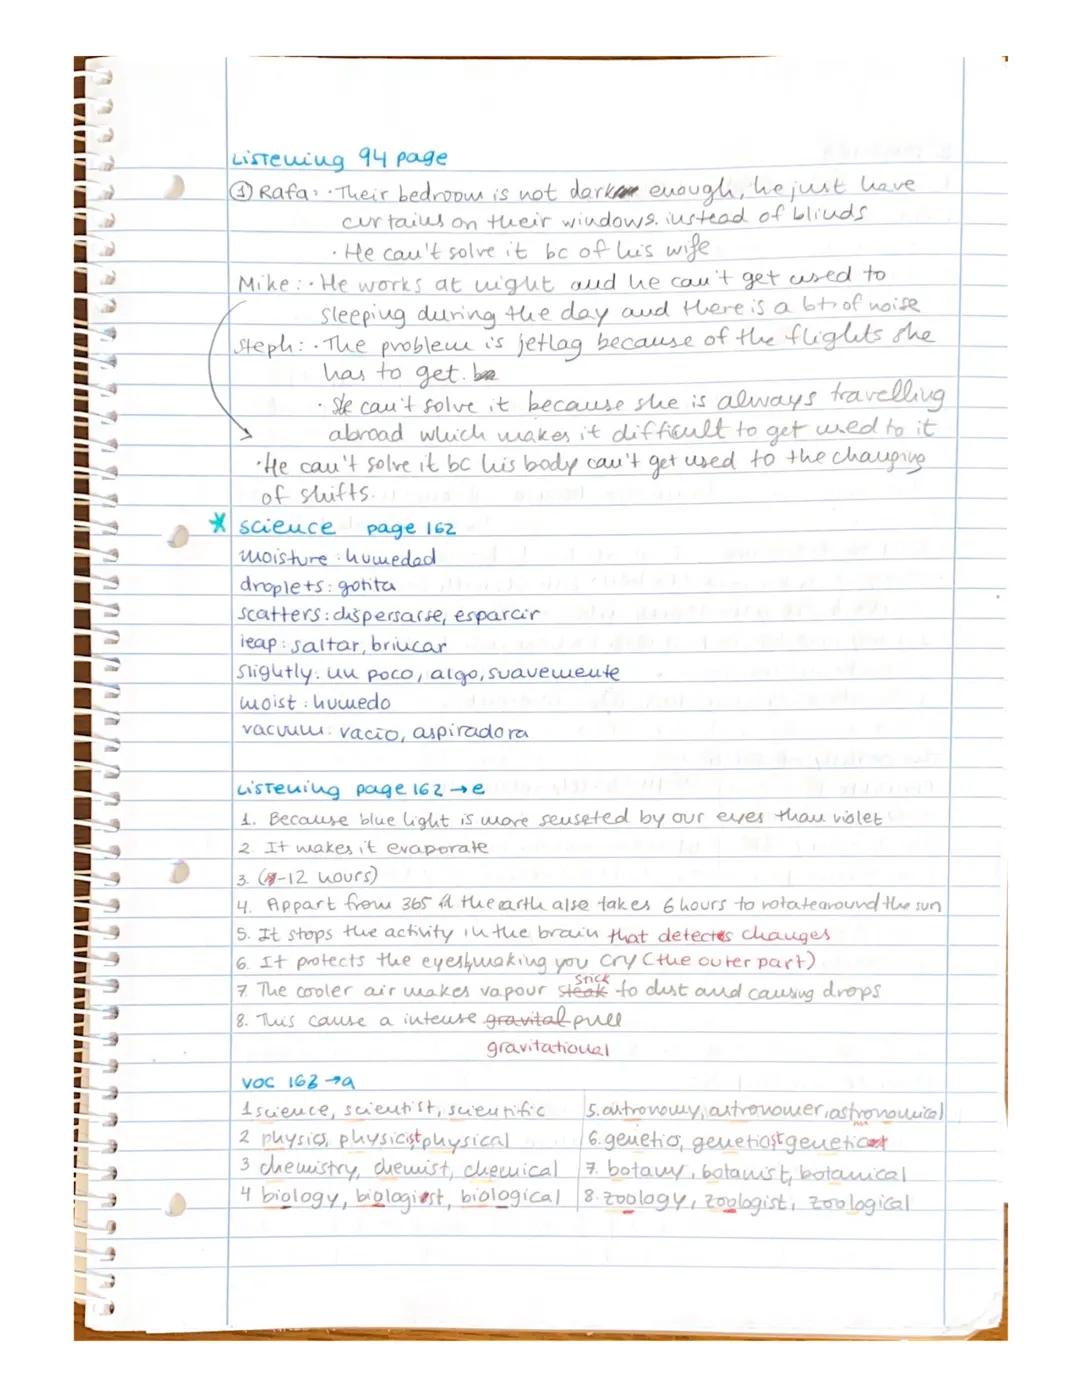 Listening 94 page
① Rafa: · Their bedroom is not dark enough, he just have
curtains on their windows. instead of blinds
· He can't solve it bc of his wife
Mike: · He works at night and he can't get used to
sleeping during the day and there is a lot of noise
Steph: · The problem is jetlag because of the flights she
has to get.
· She can't solve it because she is always travelling
abroad which makes it difficult to get used to it
· He can't solve it bc his body can't get used to the changing
of shifts.
* science page 162
moisture: humedad
droplets: gotita
scatters: dispersarse, esparcir
leap: saltar, brincar
slightly: un poco, algo, suavemente
moist: humedo
vacuum: vacio, aspiradora
Listening page 162 → e
1. Because blue light is more senseted by our eyes than violet
2. It makes it evaporate
3. (8-12 hours)
4. Appart from 365 d the earth alse takes 6 hours to rotate around the sun
5. It stops the activity in the brain that detects changes
6. It protects the eyes by making you cry (the outer part)
stick
7. The cooler air makes vapour steak to dust and causing drops
8. This cause a intense gravital pull
gravitational
voc 163 → a
1 science, scientist, scientific 5. astronomy, astronomer, astronomical
2 physics, physicist, physical 6. genetics, geneticist, genetic
3 chemistry, chemist, chemical 7. botany, botanist, botanical
4 biology, biologist, biological 8. zoology, zoologist, zoological